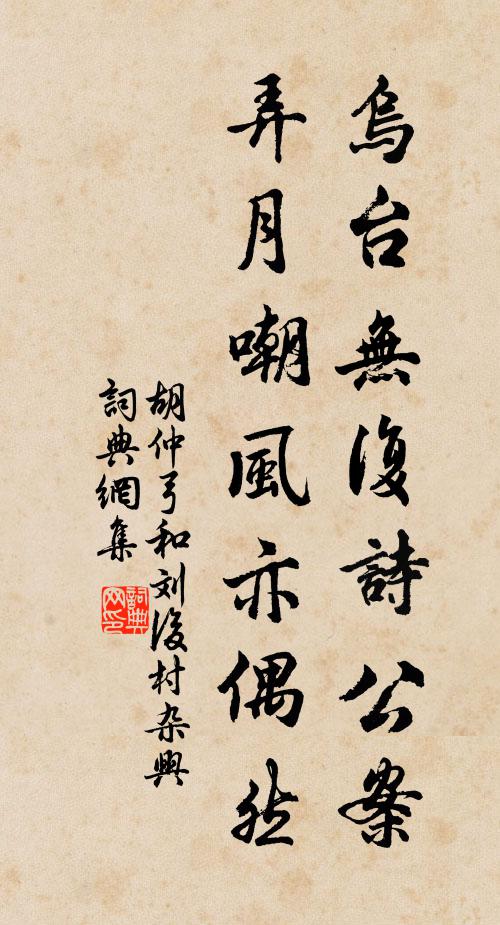 烏台無復詩公案
弄月嘲風亦偶然
胡仲弓和刘後村杂興
詞典網集
詞典网印